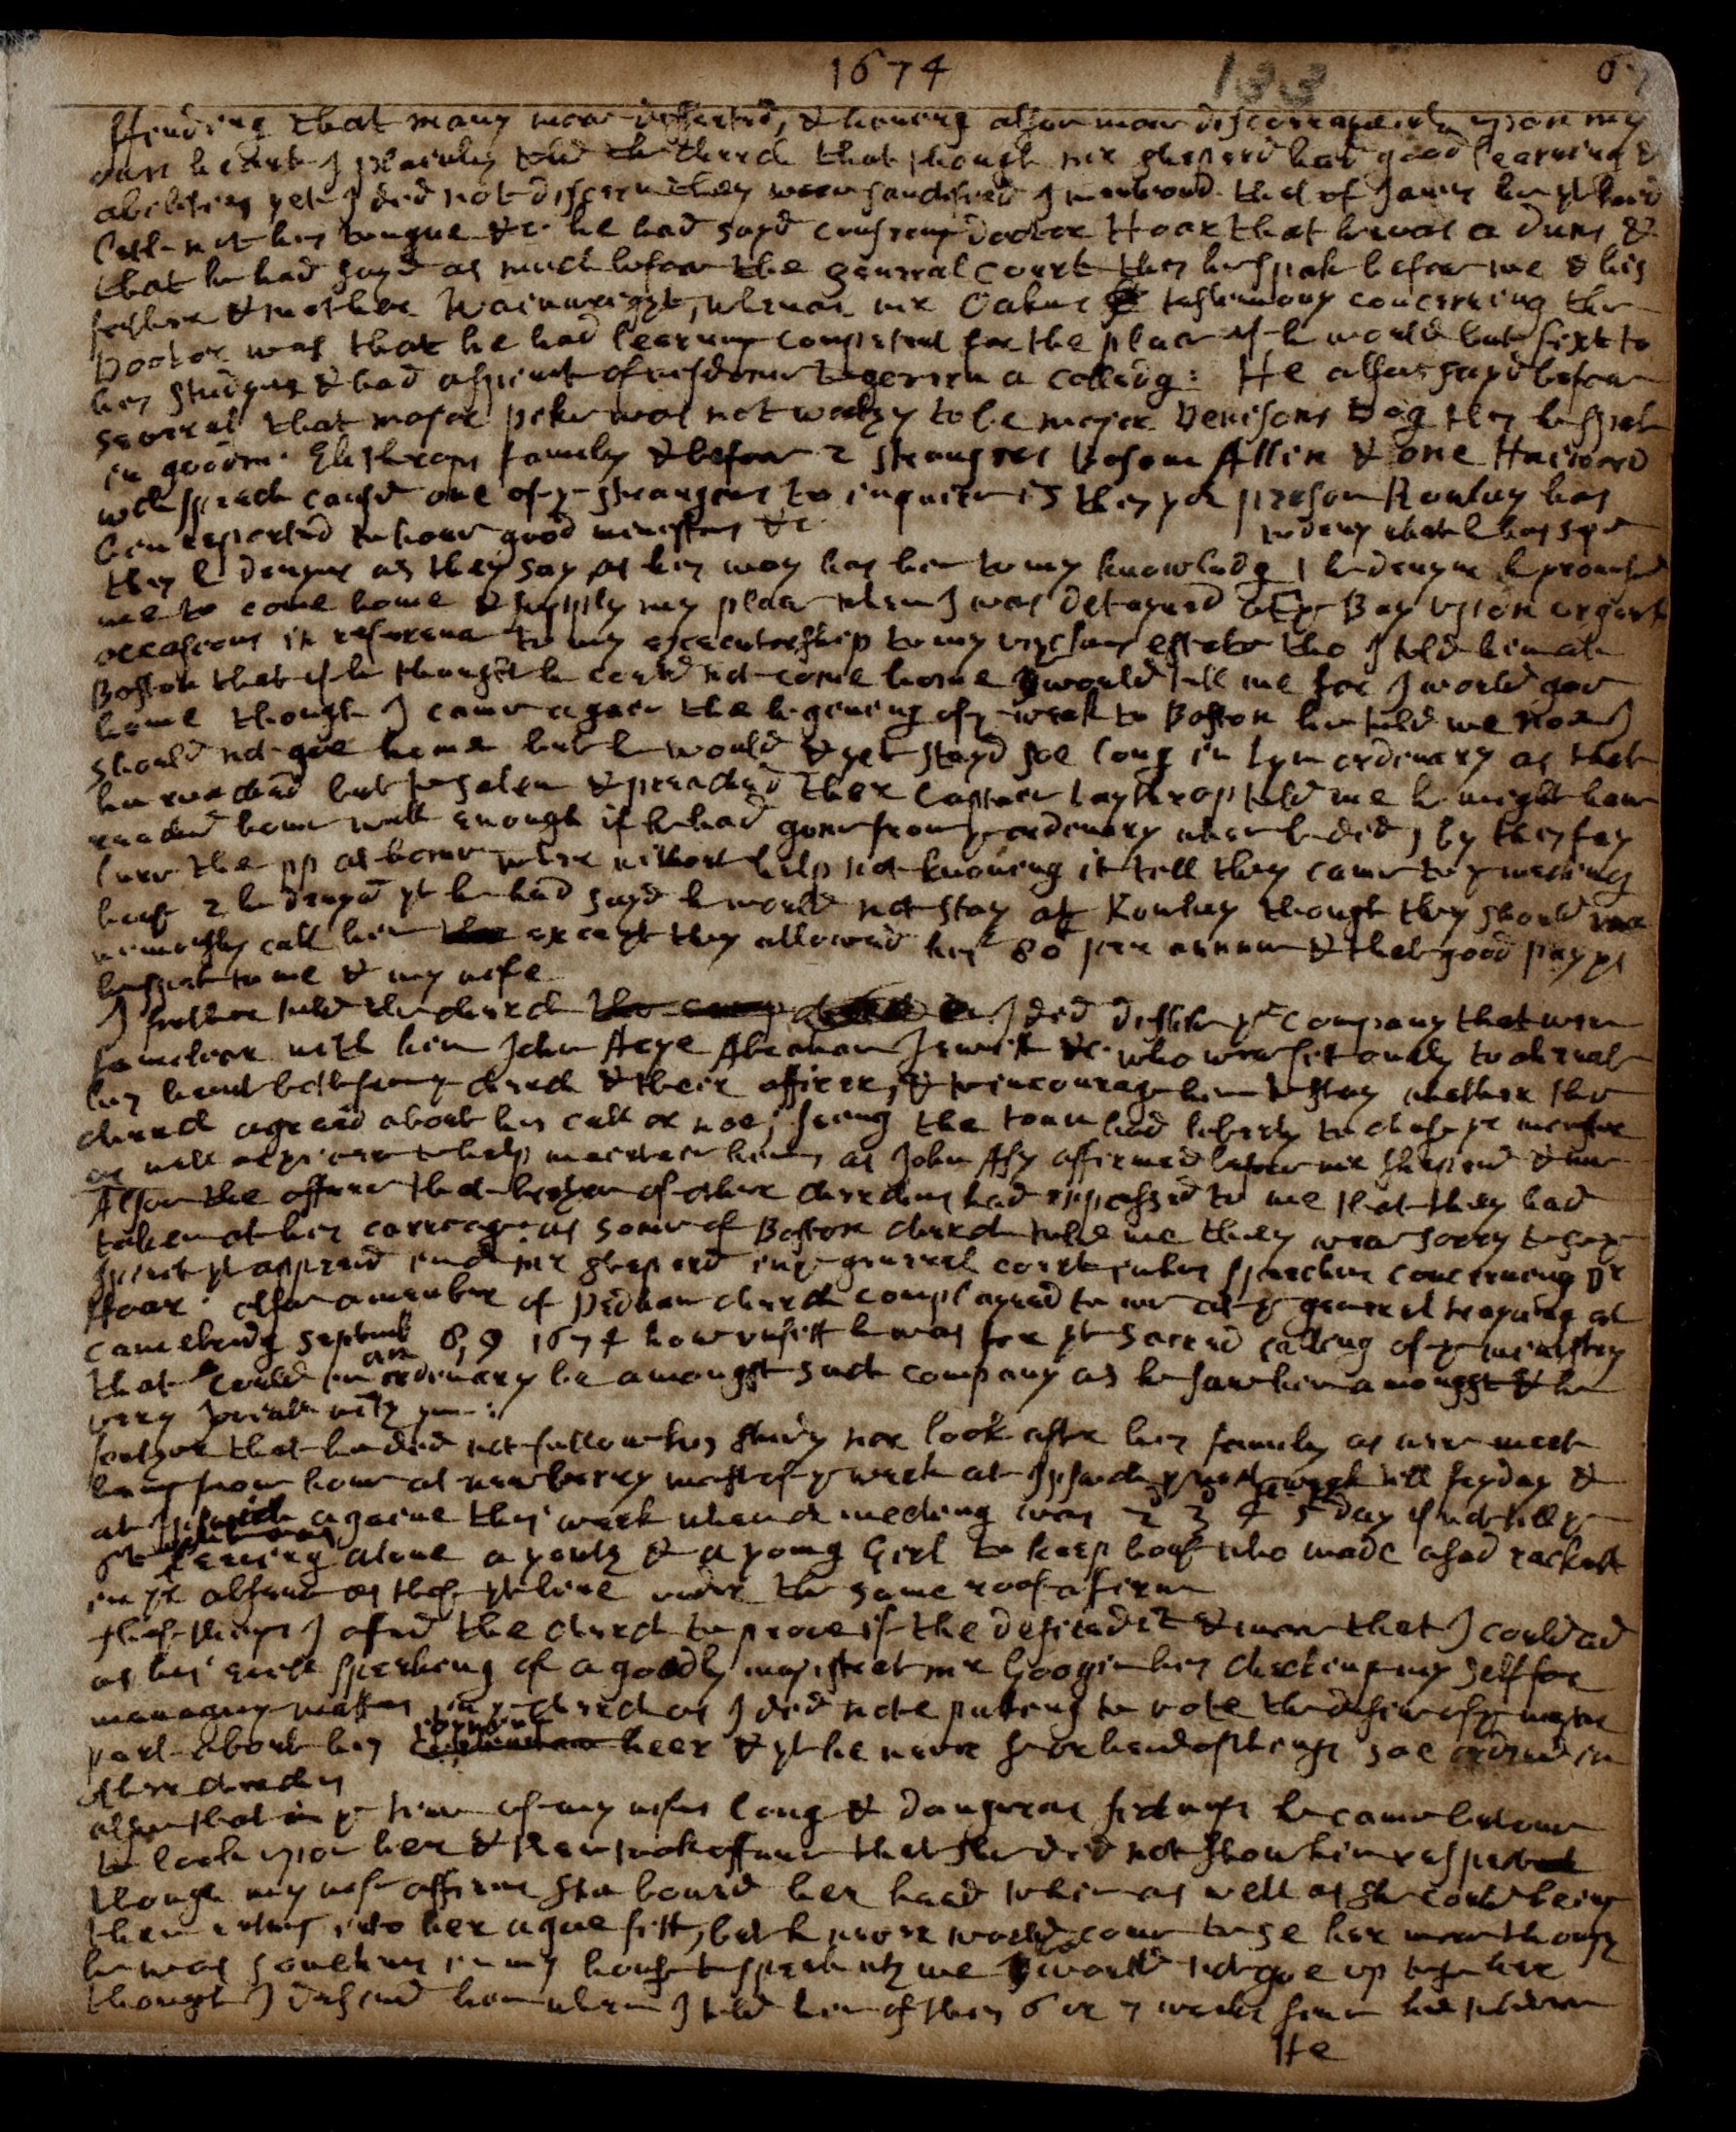 1674 133 67
ffinding that many wear disserted, & having allsoe moar discorragements upon my
own heart I plainly told the church that though mr sheperd had good learning &
abilityes yet I did not discern they wear sanctifyed I mentiond that of James him yt
not his tongue &c. he had sayd consrning Doctor Hoar that he was a duns &
that he had sayd as much before the general court this he spak befoar me & his
father & mother Wainwright, whenas mr Oakes testimony concerning the
Doctor was that he had learning competent for the place if he would but sixt to
his studyes & had a spirit of wisdome to govern a colledg: He allsoe sayd befoar
severral that major was not worthy to be major Denisons Dog this he spak
in goodm. Elethrops family & befoar 2 strangers Bosom Allin & one Haiward
wch speech causd one of ye strangers to inquier is this yor person Rowley has
been reported to have good ministers &c
to deny what he has sayd
this he denyes as they say, as his way has been to my knowledg 1 he denyed he promised
me to come home & supply my place when I was detayned at ye Bay upon urgent
occasions in referenc to my executorship to my unclses estate tho I told him at
Boston that if he thought he could not come home would tell me for I would goe
home though I came again the begining of ye week to Boston he told me noe I
should not goe home but he would & yet stayd soe long in lyn ordenary as that
he reached but to salem & preached ther Captain laythrop told me he might have
reached home well enough if he had gone from ye ordenary when he did, by this
the pp at home wear without help not knowing it till they came to ye meeting
hous 2 he denyed yt he had sayd he would not stay at Rowley though they should
call him except they allowed him 80 per annum & that good pay yt
he spak to me & my wife
I further told the church I did dislike ye company that wear
familear with him John Acye Abraham Jewit &c. who wear set ondly to
his heart both from ye church & their officer, & to incourage him to stay whether the
church agreed about his call or noe, seing the town had liberty to choose yr minister
as well as ye church to help maintain him, as John Asy affirmed befoar mr Sheperd & me
Allsoe the offence that brethren of other churches had expressed to me that they had
taken at his carreage: as some of Boston church told me they wear sorry to se ye
spirit yt appeared in mr sheperd in ye generall court in his speeches concerning Dr
Hoar: allsoe a member of Dedham church complayned to me at ye general trayning at
Camebridg Septemb 8, 9 1674 how unfitt he was for yt sacred calling of ye ministry
that could in an ordenary be amongst such company as he saw him amongst & be
very jovial with ym:
further that he did not follow his study nor look after his family as was meet
being from home at newberry most of ye week at Ipswich ye next week till fryday &
at Ipswich againe this week when ch meeting was 2d 3 4 5th day if not till ye
6t leaving alone a youth & a young Girl to keep hous who made a sad rackett
in yr absenc as thos yt live under the same roof afirm
these things I offerd the church to prove if the desired it & moar that I could ad
as his evill speaking of a goodly majistrat mr Googin his checking my self for
managing matters in ye church as I did not putting to vote the desires of ye major
part about his heer & yt he never heard of things soe orderd in
other churches
allsoe that in ye time of my wifes long & dangeras sicknes he came but onc
to look upon her & then took offence that she did not show him respect
though my wife affirms she bowed her head to him as well as she could being
then entring into her ague fitt, but he never would come to se her moar though
he was somtimes in my house to speak with me would not goe up to se her
thought I desired him when I told him of this 6 or 7 weeks sinc
He